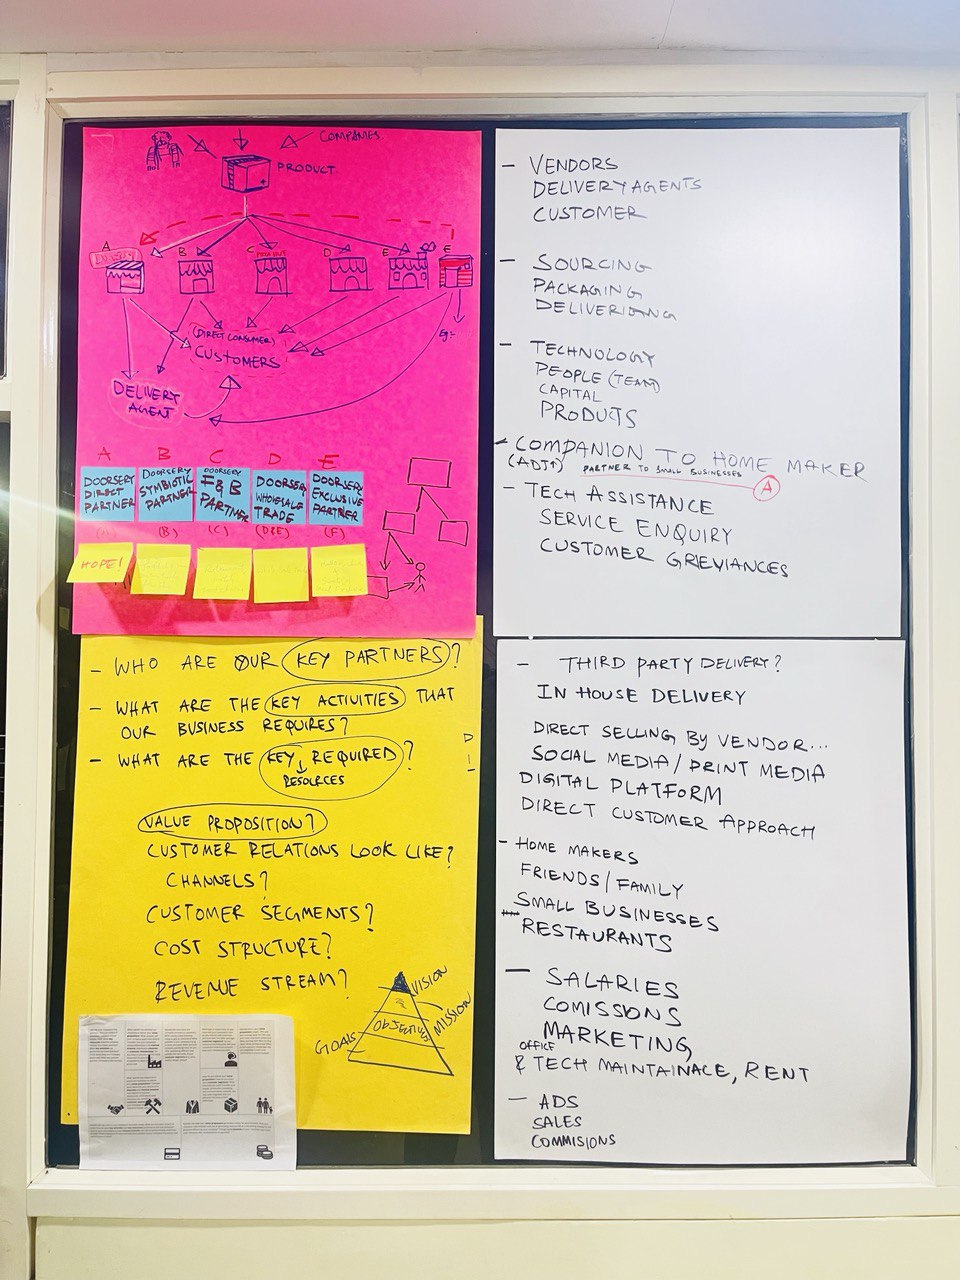 COMPANIES.
PRODUCT
A
B
C
D
E
E
(DIRECT CONSUMER)
CUSTOMERS
Eg:-
DELIVERY
AGENT
A B C D E
DOORSERY
DIRECT
PARTNER
DOORSERY
SYMBIOTIC
PARTNER
DOORSERY
F&B
PARTNER
DOORSERY
WHOLESALE
TRADE
DOORSERY
EXCLUSIVE
PARTNER
(B) (C) (D&E) (F)
HOPE!
- WHO ARE OUR KEY PARTNERS?
- WHAT ARE THE KEY ACTIVITIES THAT
OUR BUSINESS REQUIRES?
- WHAT ARE THE KEY REQUIRED?
RESOURCES
VALUE PROPOSITION?
CUSTOMER RELATIONS LOOK LIKE?
CHANNELS?
CUSTOMER SEGMENTS?
COST STRUCTURE?
REVENUE STREAM?
VISION
MISSION
OBJECTIVES
GOALS
- VENDORS
DELIVERY AGENTS
CUSTOMER
- SOURCING
PACKAGING
DELIVERIGNG
- TECHNOLOGY
PEOPLE (TEAM)
CAPITAL
PRODUCTS
- COMPANION TO HOME MAKER
PARTNER TO SMALL BUSINESSES A
- TECH ASSISTANCE
SERVICE ENQUIRY
CUSTOMER GREVIANCES
- THIRD PARTY DELIVERY?
IN HOUSE DELIVERY
DIRECT SELLING BY VENDOR...
SOCIAL MEDIA/PRINT MEDIA
DIGITAL PLATFORM
DIRECT CUSTOMER APPROACH
- HOME MAKERS
FRIENDS/FAMILY
SMALL BUSINESSES
RESTAURANTS
- SALARIES
COMISSIONS
MARKETING
OFFICE
& TECH MAINTAINACE, RENT
- ADS
SALES
COMMISIONS